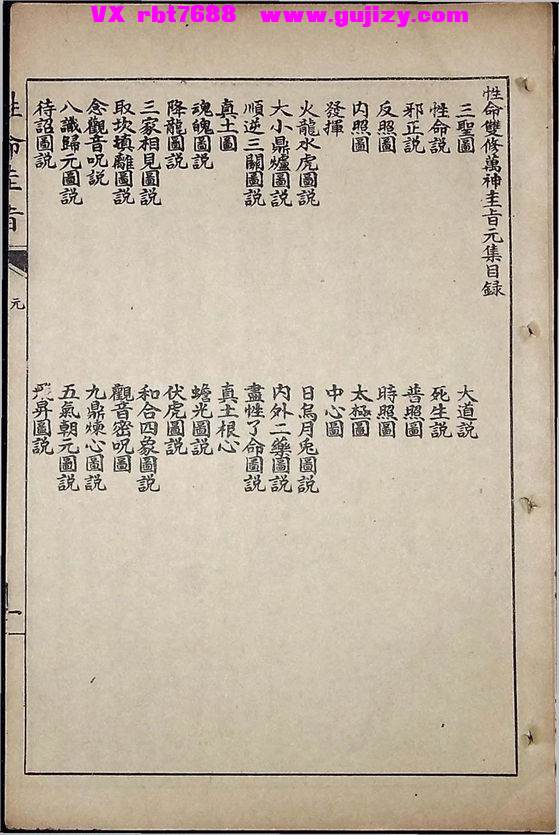 VX rbt7688 www.gujizy.com
性命雙修萬神圭旨元集目録
三聖圖 大道説
性命説 死生説
邪正説 普照圖
反照圖 時照圖
内照圖 太極圖
發揮 中心圖
火龍水虎圖説 日烏月兔圖説
大小鼎爐圖説 内外二藥圖説
順逆三關圖説 盡性了命圖説
真土圖 真土根心
魂魄圖説 蟾光圖説
降龍圖説 伏虎圖説
三家相見圖説 和合四象圖説
取坎塡離圖説 觀音密呪圖
念觀音呪説 九鼎煉心圖説
八識歸元圖説 五氣朝元圖説
待詔圖説 飛昇圖説
性命圭旨 元 一